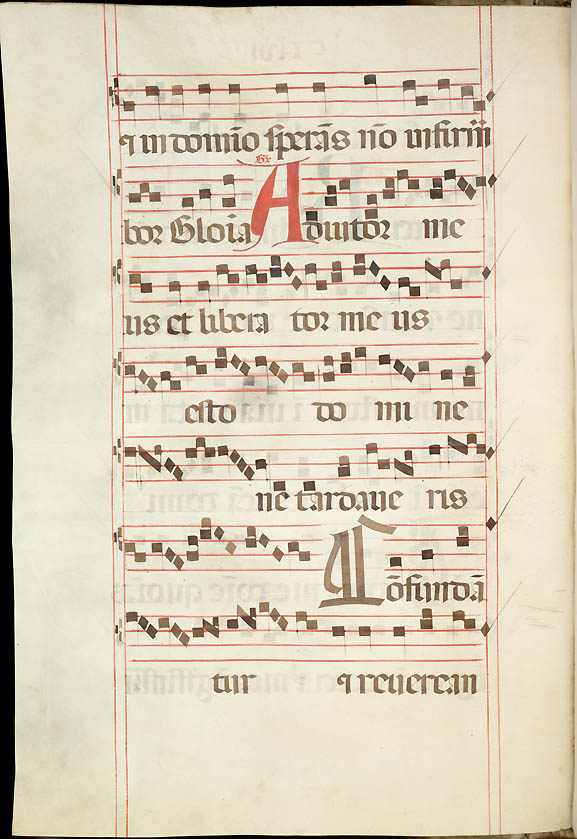 ⁊ in domĩo sperãs nõ infirm̃
bor Gloĩa Gr̃ Adiutor me
us et libera tor me us
esto do mi ne
ne tardaue ris
Cõfundã
tur ⁊ reuerean